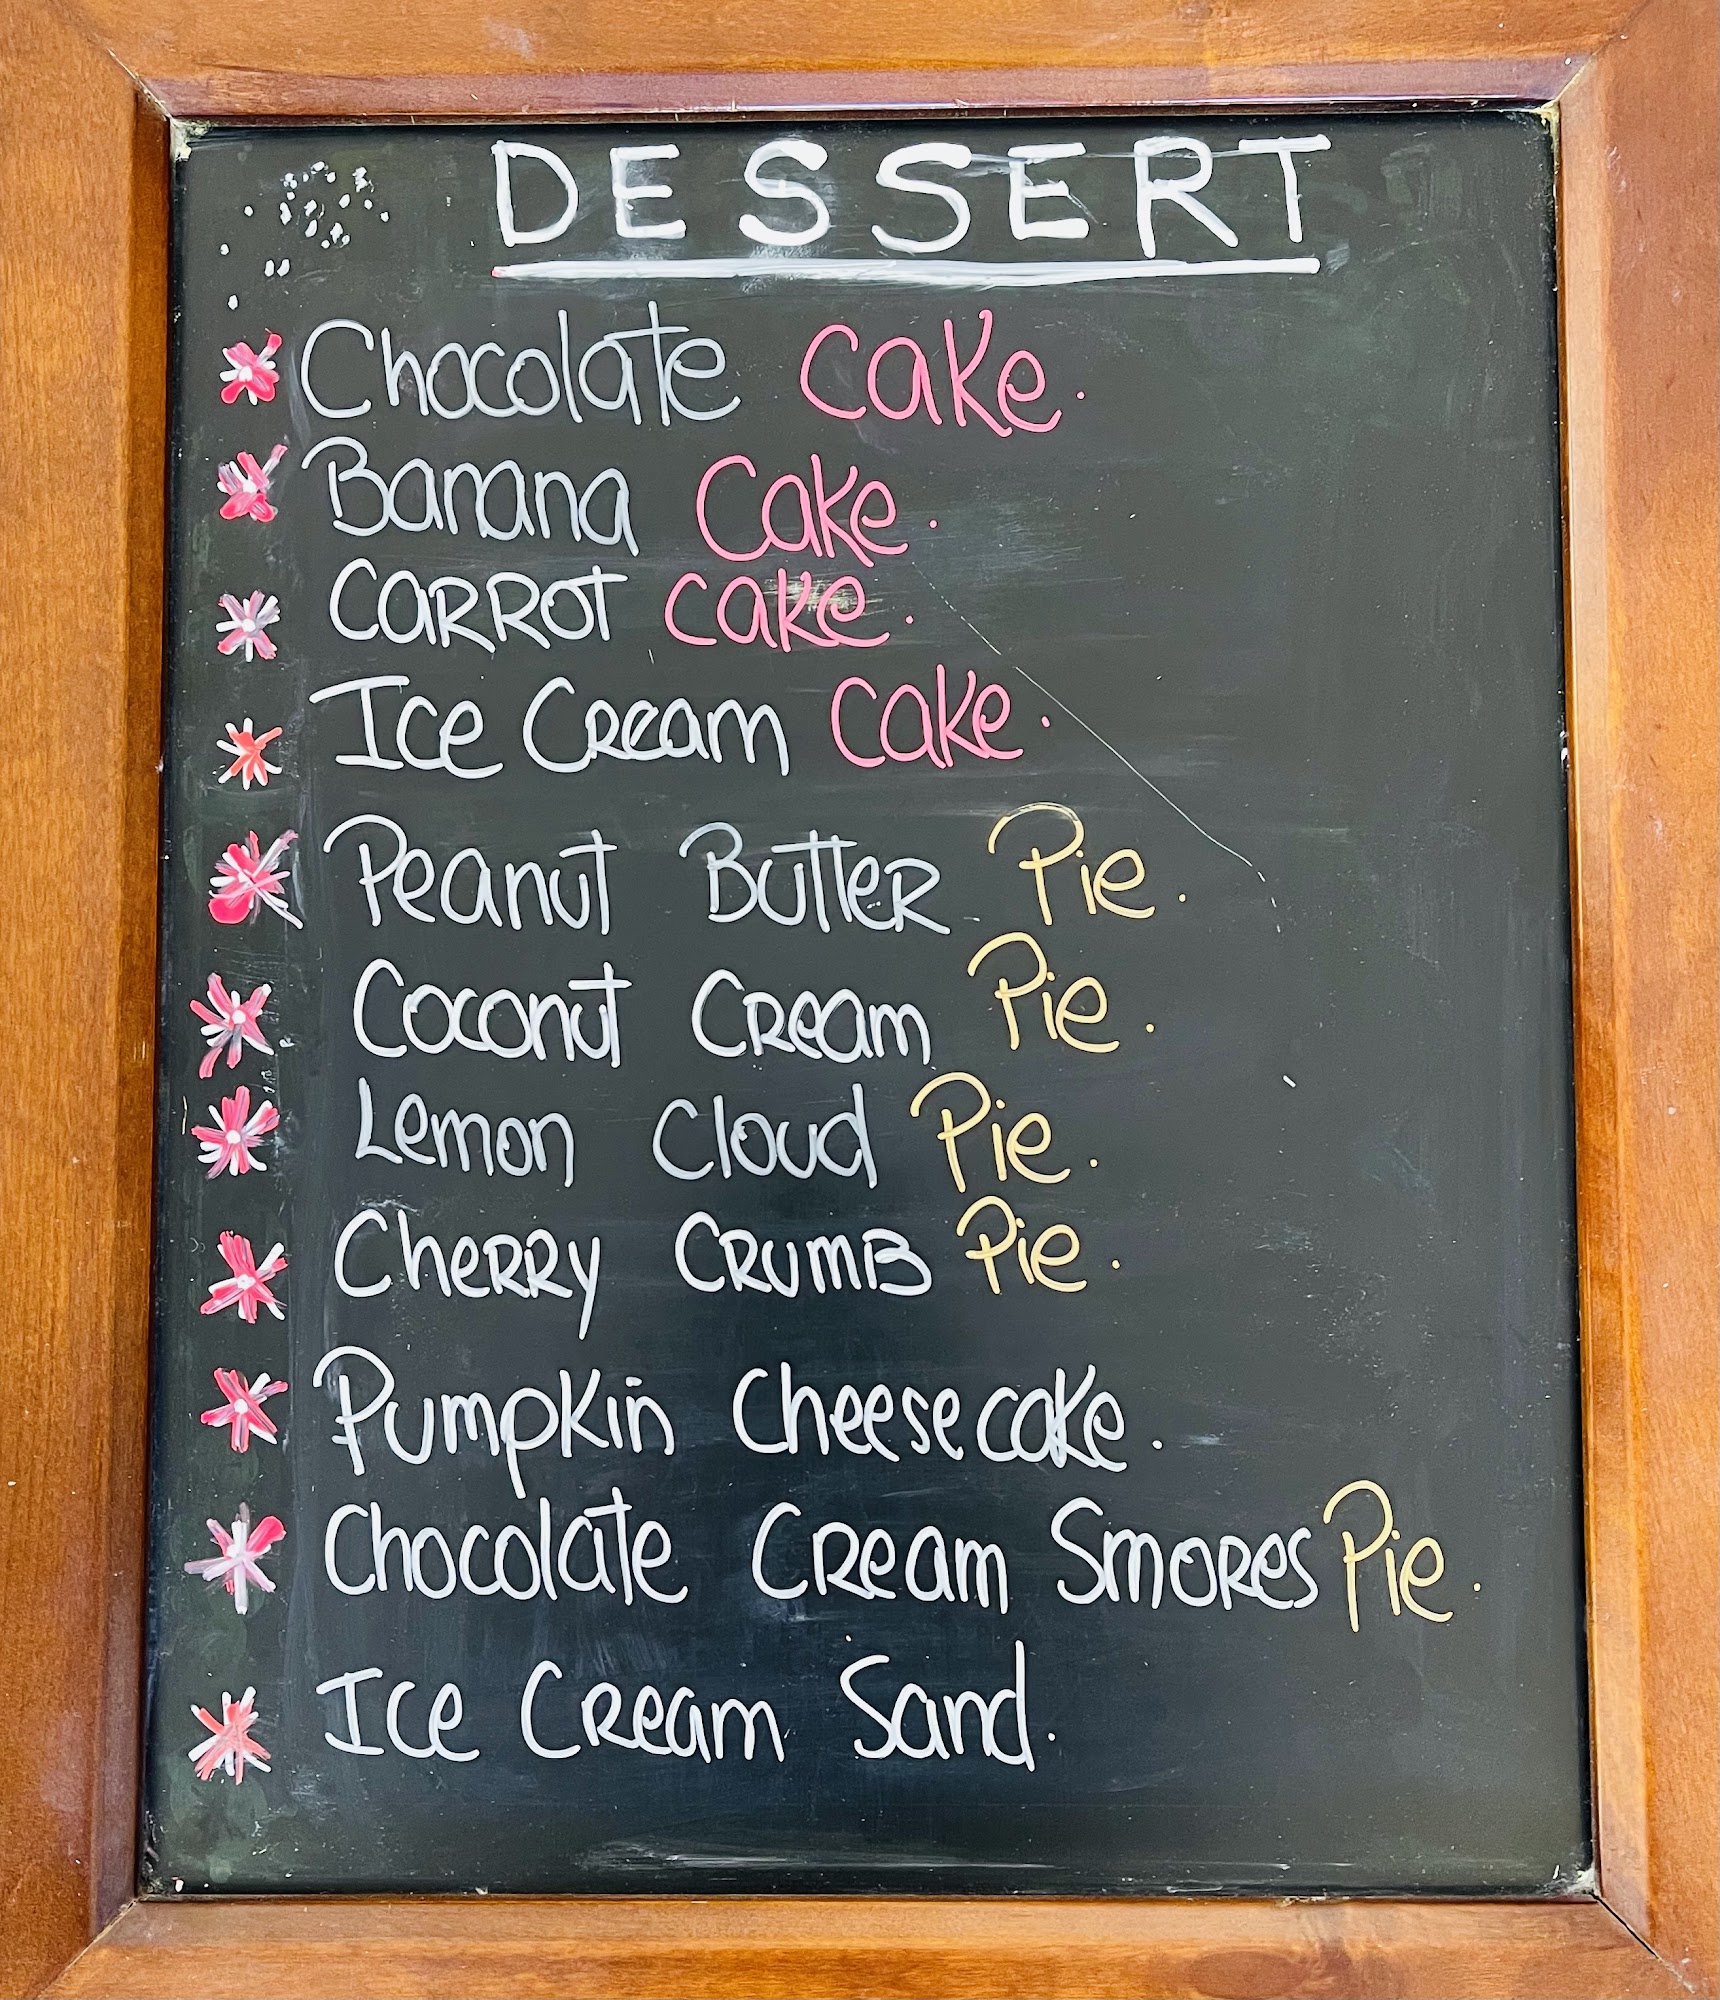 DESSERT
Chocolate Cake.
Banana Cake.
CARROT Cake.
Ice Cream Cake.
Peanut Butter Pie.
Coconut Cream Pie.
Lemon Cloud Pie.
Cherry Crumb Pie.
Pumpkin Cheesecake.
Chocolate Cream Smores Pie.
Ice Cream Sand.